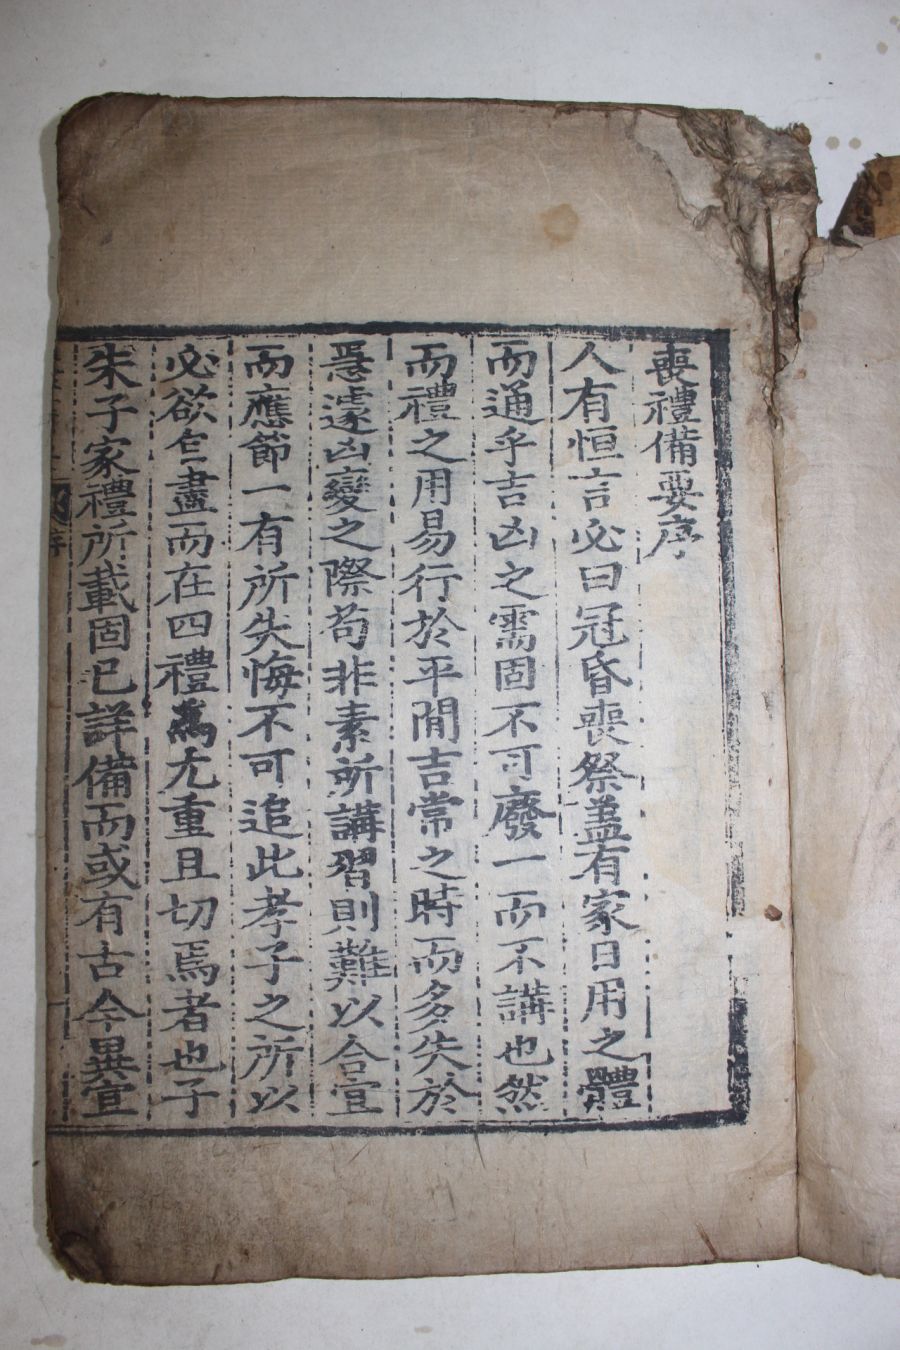 喪禮備要序
人有恒言必曰冠昏喪祭盖有家日用之體
而通乎吉凶之需固不可廢一而不講也然
而禮之用易行於平閒吉常之時而多失於
急遽凶變之際苟非素所講習則難以合宜
而應節一有所失悔不可追此孝子之所以
必欲盡而在四禮爲尤重且切焉者也子
朱子家禮所載固已詳備而或有古今異宜